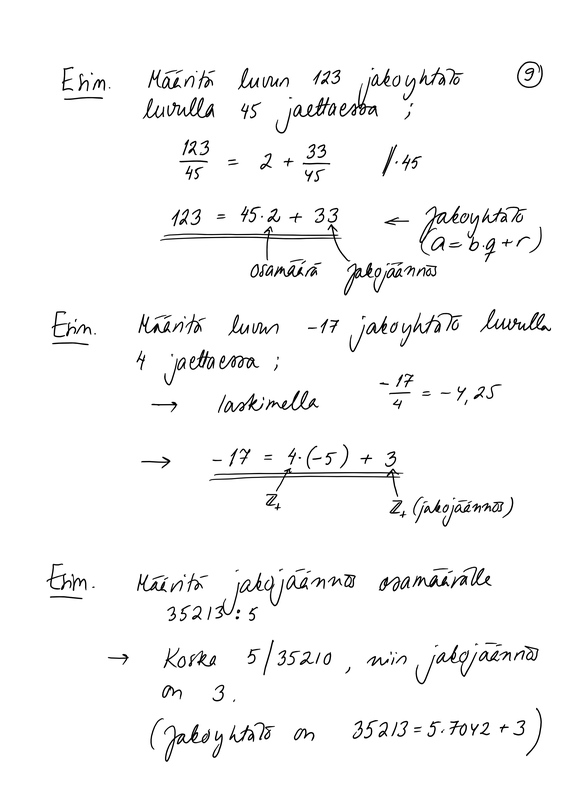 Esim. Määritä luvun 123 jakoyhtälö ⑨
luvulla 45 jaettaessa ;
123/45 = 2 + 33/45 ‖·45
123 = 45·2 + 33 ← Jakoyhtälö
(a = b·q + r)
osamäärä jakojäännös
Esim. Määritä luvun -17 jakoyhtälö luvulla
4 jaettaessa ;
→ laskimella -17/4 = -4,25
→ -17 = 4·(-5) + 3
ℤ₊ ℤ₊ (jakojäännös)
Esim. Määritä jakojäännös osamäärälle
35213 : 5
→ Koska 5/35210, niin jakojäännös
on 3.
(Jakoyhtälö on 35213 = 5·7042 + 3)